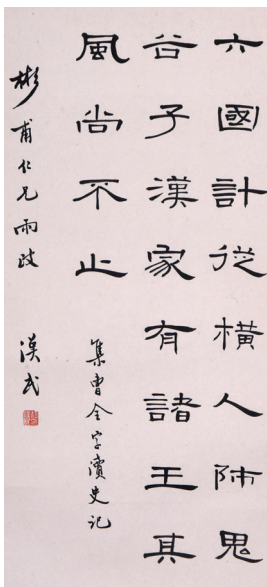 六國計從橫人師鬼
谷子漢家有諸王其
風尚不止
集曹全字濱史記
彬甫仁兄雨政
漢民